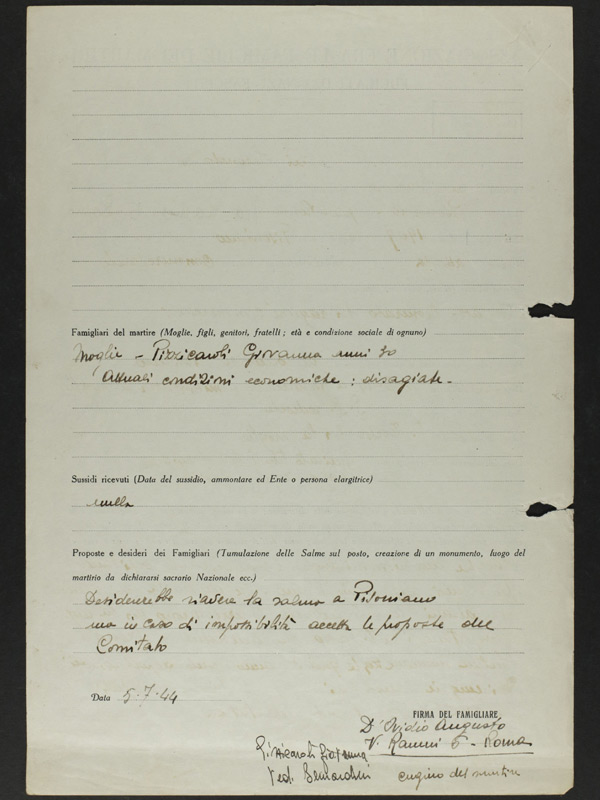 Famigliari del martire (Moglie, figli, genitori, fratelli ; età e condizione sociale di ognuno)
Moglie - Pizzicaroli Giovanna anni 30
Attuali condizioni economiche : disagiate.
Sussidi ricevuti (Data del sussidio, ammontare ed Ente o persona elargitrice)
nulla
Proposte e desideri dei Famigliari (Tumulazione delle Salme sul posto, creazione di un monumento, luogo del
martirio da dichiararsi sacrario Nazionale ecc.)
Desidererebbe riavere la salma a Pisoniano
ma in caso di impossibilità accetta le proposte del
Comitato
Data 5-7-44
FIRMA DEL FAMIGLIARE
D'Ovidio Augusto
V. 5 - Roma
Pizzicaroli Giovanna
Ved. Bernardini
cugino del martire